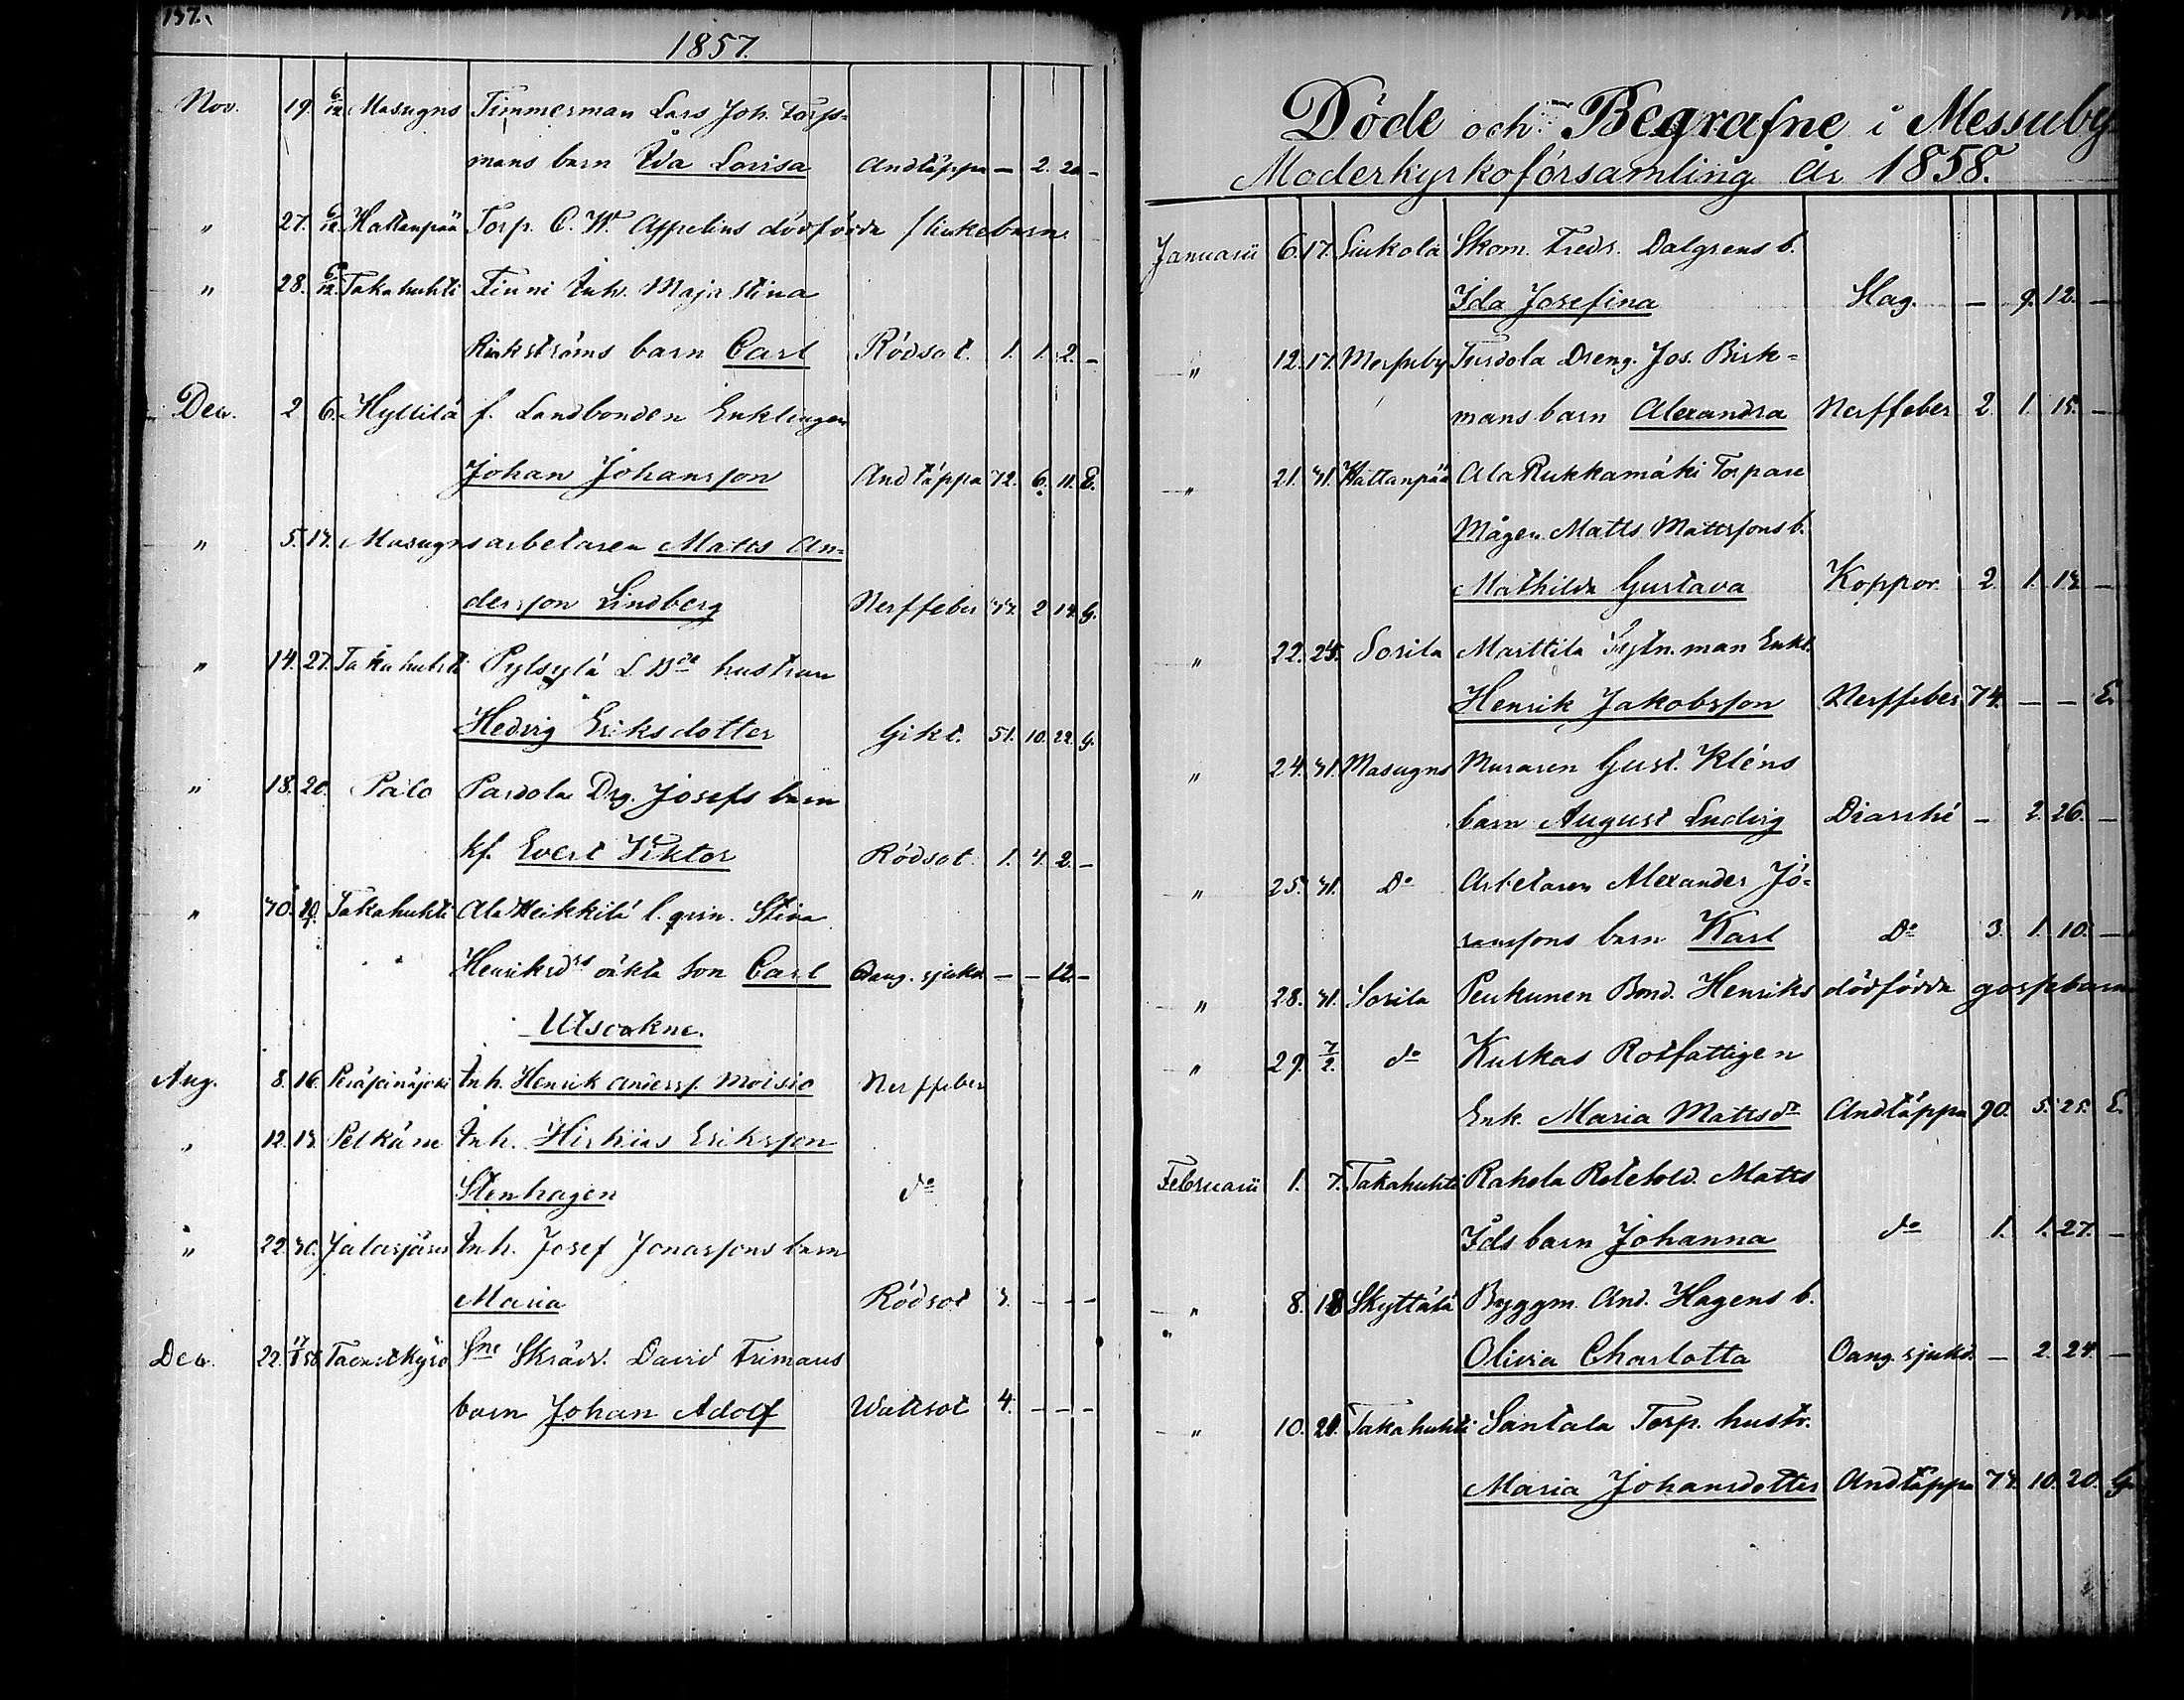 137.
1857.
Nov. 19. 6/12 Masugns Timmerman Lars Joh. Torss=
mans barn Ida Lovisa Andtäppa — 2. 20 —
" 27. 6/12 Hattanpää Torp. C. W. Appelins dödfödda flickebarn.
" 28. 6/12 Takahuhti Finni Inh. Maja Stina
barn Carl Rödsot. 1. 1. 2. —
Dec. 2 6. Hyllilä f. Landbonden Enklingen
Johan Johansson Andtäppa 72. 6. 11. E.
" 5. 13. Masugnsarbetaren Matts An=
dersson Lindberg Nerffeber 2 14. G.
" 14. 27. Takahuhti Pylsylä L Bde hustrun
Hedvig Eriksdotter Gikt. 51. 10. 22. G.
" 18. 20. Palo Pardola Drg. Josefs barn
kf. Evert Viktor Rödsot 1. 3. 2. —
" 30. 10. Takahuhti Ala Heikkilä l. qvin. Stina
Henriksdrs oäkta son Carl Oang. sjukd — — 12. —
Utsockne.
Aug. 8. 16. Inh. Henrik Anderss. Moisio Nerffeber
" 12. 13. Pelkäne Inh. Hiskias Eriksson
Stenhagen do
" 22. 30. Jalasjärvi Inh. Josef Jonassons barn
Maria Rödsot 3. — — —
Dec. 22. 17/1 58. Tavastkyrö Sne Skrädd. David Frimans
barn Johan Adolf Wattsot 4. — — —
Döde och Begrafne i Messuby
Moderkyrkoförsamling År 1858.
Januarii 6. 17. Liukola Skom. Fredr. Dalgrens b.
Ida Josefina Slag. — 9. 12. —
" 12. 17. Messuby Turdola Dreng. Jos. Birk=
mans barn Alexandra Nerffeber 2. 1. 15. —
" 21. 31. Hattanpää Ala Rukkamäki Torpare
Mågen Matts Mattssons b.
Mathilda Gustava Koppor. 2. 1. 13. —
" 22. 25. Sorila Marttila Sytn. man Enkl.
Henrik Jakobsson Nerffeber 74. — — E.
" 24. 31. Masugns Muraren Gust. Kléns
barn August Ludvig Diarrhé — 2. 26. —
" 25. 31. Do Arbetaren Alexander Jö=
ranssons barn Karl Do 3. 1. 10. —
" 28. 31. Sorila Peukunen Bond. Henriks dödfödda gossebarn
" 29. 7/2. do Kuskas Rotfattigen
Enk. Maria Mattsdr Andtäppa 90. 5. 25. E.
Februarii 1. 7. Takahuhti Rahola Rotehold. Matts
Ids barn Johanna do 1. 1. 27. —
" 8. 18 Skyttälä Byggm. And. Hagens b.
Olivia Charlotta Oang. sjukd. — 2. 24. —
" 10. 21. Takahuhti Santala Torp. hustr.
Maria Johansdotter Andtäppa 73. 10. 20. G.